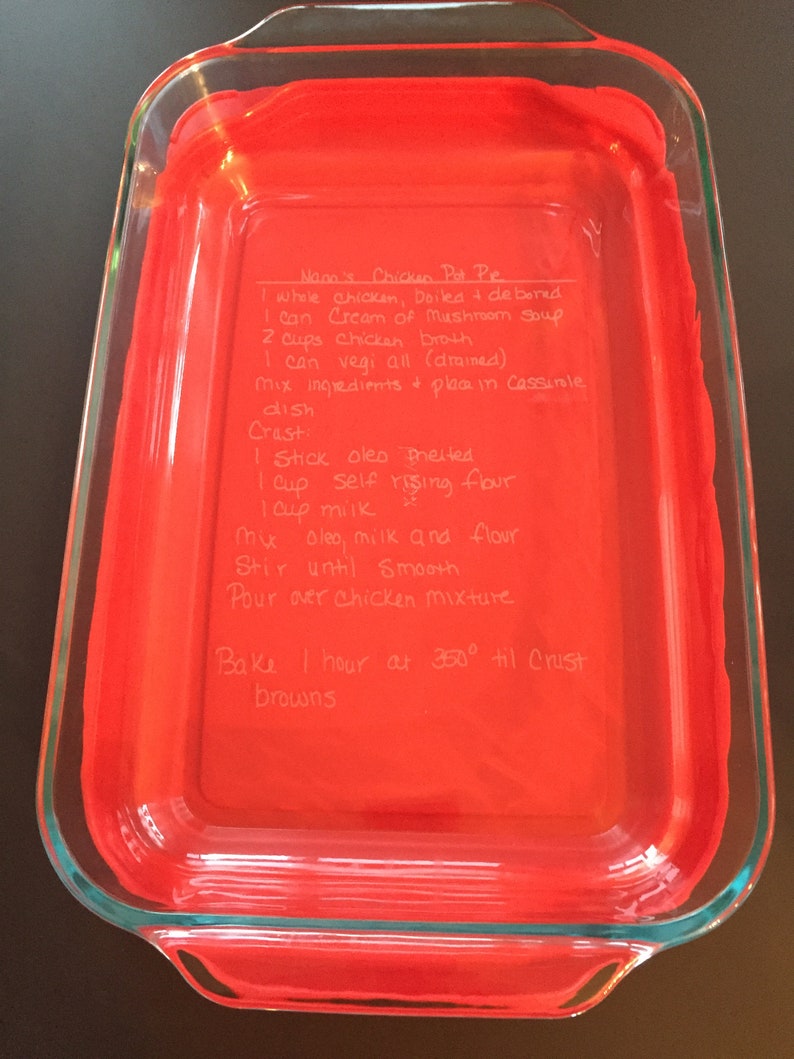 Nano's Chicken Pot Pie
1 whole chicken, boiled + deboned
1 can Cream of Mushroom soup
2 cups chicken broth
1 can vegi all (drained)
Mix ingredients + place in Casserole
dish
Crust:
1 stick oleo melted
1 cup self rising flour
1 cup milk
Mix oleo, milk and flour
Stir until smooth
Pour over chicken mixture
Bake 1 hour at 350° til Crust
browns